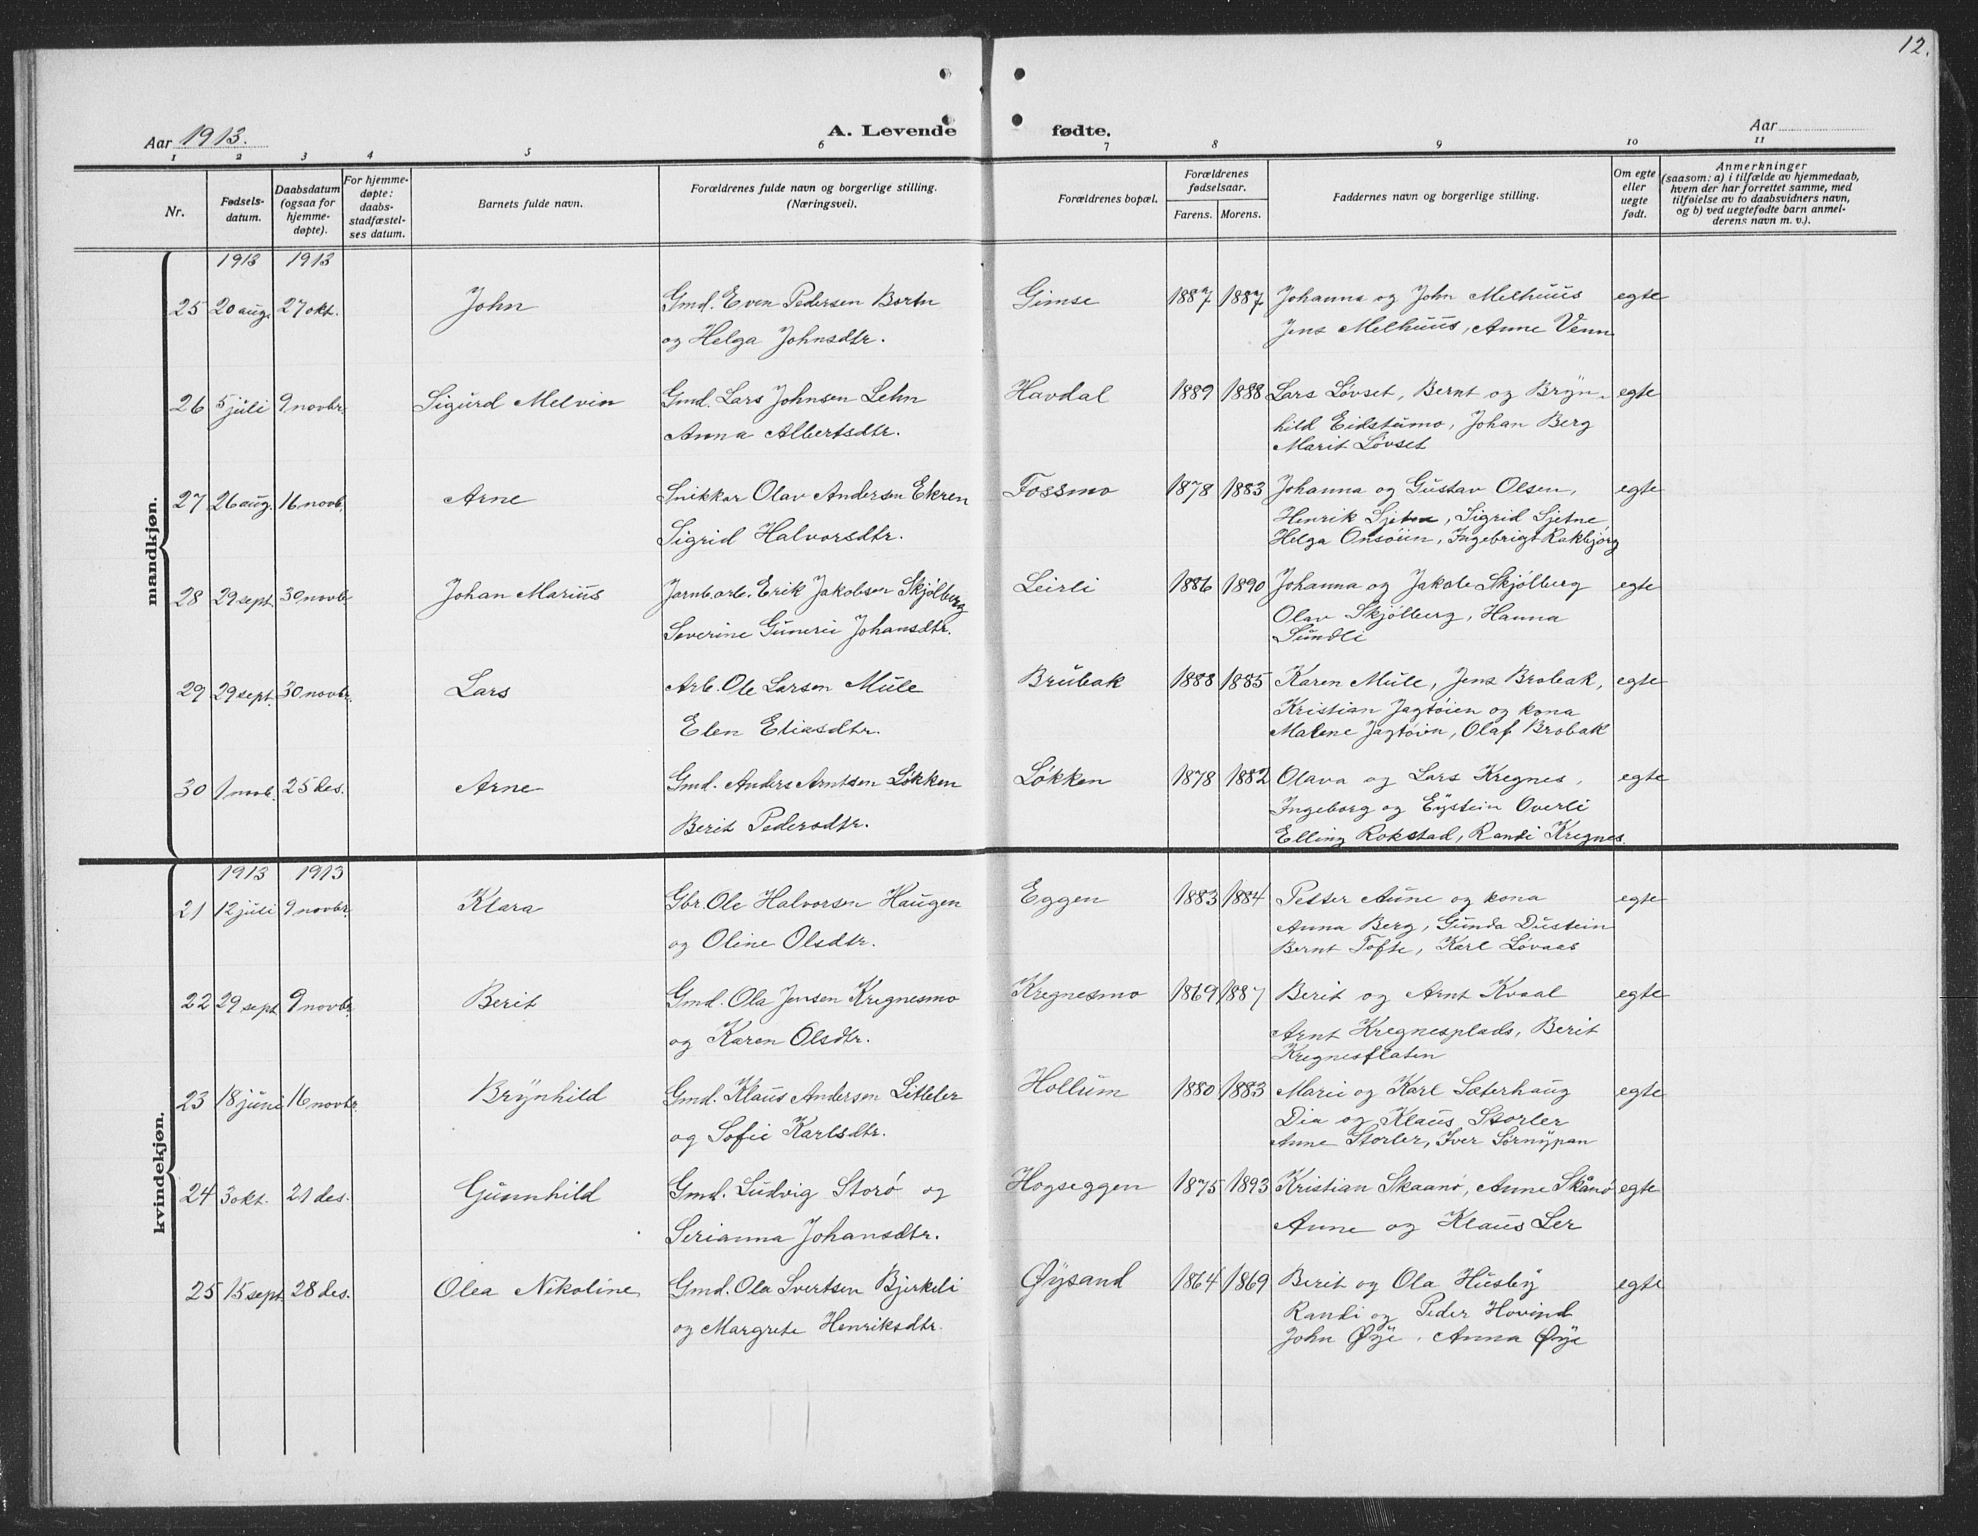 12.
Aar 1913.
A. Levende fødte.
Aar
1 2 3 4 5 6 7 8 9 10 11
Nr.
Fødsels-
datum.
Daabsdatum
(ogsaa for
hjemme-
døpte).
For hjemme-
døpte:
daabs-
stadfæstel-
ses datum.
Barnets fulde navn.
Forældrenes fulde navn og borgerlige stilling.
(Næringsvei).
Forældrenes bopæl.
Forældrenes
fødselsaar.
Farens. Morens.
Faddernes navn og borgerlige stilling.
Om egte
eller
uegte
født.
Anmerkninger
(saasom: a) i tilfælde av hjemmedaab,
hvem der har forrettet samme, med
tilføielse av to daabsvidners navn,
og b) ved uegtefødte barn anmel-
derens navn m. v.).
mandkjøn.
1913 1913
25 20 aug. 27 okt. John Gmd. Even Pedersen Bortn Gimse 1887 1887 Johanna og John Melhuus egte
og Helga Johnsdtr. Jens Melhuus, Anne Venn
26 5 juli 9 novbr. Sigurd Melvin Gmd. Lars Johnsen Lehn Havdal 1889 1888 Lars Løvset, Bernt og Bryn- egte
Anna Albertsdtr. hild Eidstumo, Johan Berg
Marit Løvset
27 26 aug. 16 novb. Arne Snikkar Olav Andersen Ekren Fossmo 1878 1883 Johanna og Gustav Olsen, egte
Sigrid Halvorsdtr. Henrik Sjetne, Sigrid Sjetne
Helga Onsøien, Ingebrigt Rakbjørg
28 29 sept. 30 novb. Johan Marius Jarnb.arb. Erik Jakobsen Skjølberg Leirli 1886 1890 Johanna og Jakob Skjølberg egte
Severine Gunerie Johansdtr. Olav Skjølberg, Hanna
Sundli
29 29 sept. 30 novbr. Lars Arb. Ole Larsen Mule Brubak 1888 1885 Karen Mule, Jens Brobak, egte
Elen Eliasdtr. Kristian Jagtøien og kona
Malene Jagtøien, Olaf Brobak
30 1 novb. 25 des. Arne Gmd. Anders Arntsen Løkken Løkken 1878 1882 Olava og Lars Kregnes, egte
Berit Pedersdtr. Ingeborg og Eystein Overli
Elling Rokstad, Randi Kregnes.
kvindekjøn.
1913 1913
21 12 juli 9 novbr. Klara Gbr. Ole Halvorsen Haugen Eggen 1883 1884 Petter Aune og kona egte
og Oline Olsdtr. Anna Berg, Gunda Dustein
Bernt Tofte, Karl Løvaas
22 29 sept 9 novbr. Berit Gmd. Ola Jensen Kregnesmo Kregnesmo 1869 1887 Berit og Arnt Kvaal egte
og Karen Olsdtr. Arnt Kregnesplads, Berit
Kregnesflaten
23 18 juni 16 novbr. Brynhild Gmd. Klaus Andersen Litleler Hollum 1880 1883 Marie og Karl Sæterhaug egte
og Sofie Karlsdtr. Dia og Klaus Storler
Anne Storler, Iver Sørnypan
24 3 okt. 21 des. Gunnhild Gmd. Ludvig Storø og Hogseggen 1875 1893 Kristian Skaanø, Anne Skånø egte
Serianna Johansdtr. Anne og Klaus Ler
25 15 sept. 28 des. Olea Nikoline Gmd. Ola Svertsen Bjerkeli Øysand 1864 1869 Berit og Ola Husby egte
og Margrete Henriksdtr. Randi og Peder Hovind
John Øye, Anna Øye